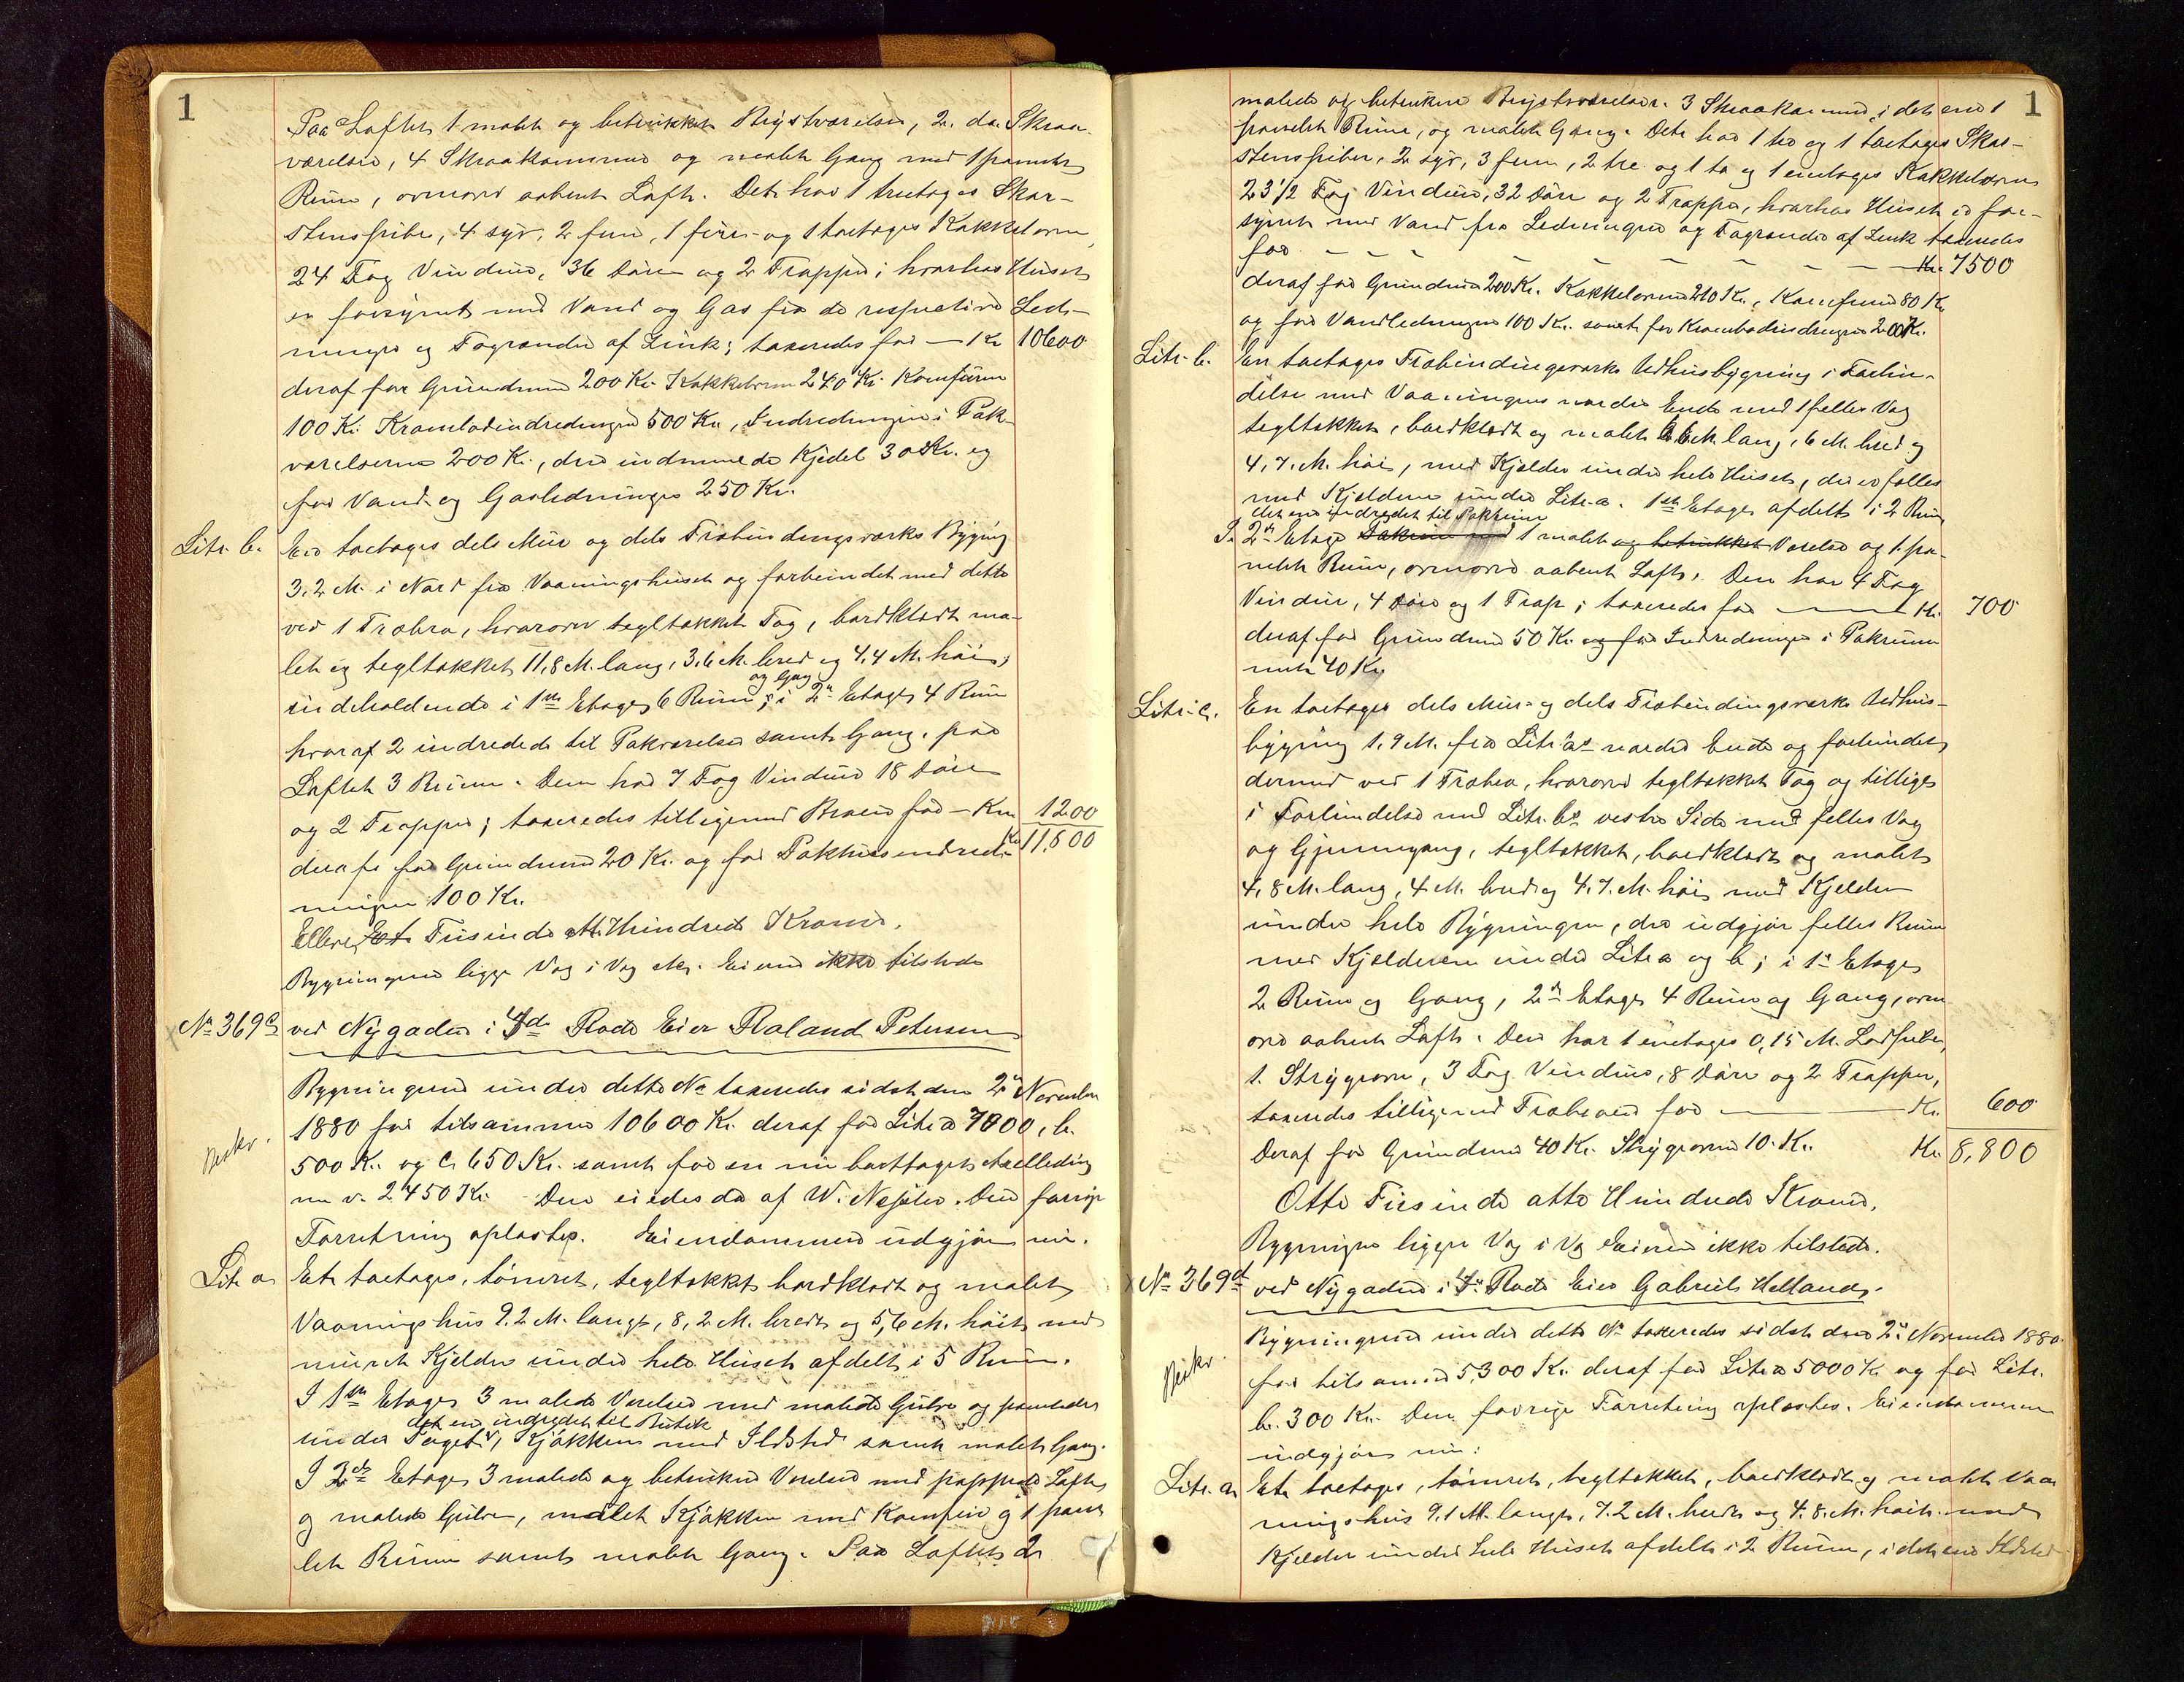 1
Paa Loftet 1 malet og betrukket Brystværelse, 2 do Skraa-
værelser, 4 Skraakammere og malet Gang med 1 panelet
Rum, ovenover aabent Loft. Det har 1 treetages Skor-
stenspibe, 4 syv, 2 fem, 1 fire- og 1 toetages Kakkelovn,
24 Fag Vinduer, 36 Døre og 2 Trapper; hvorhos Huset
er forsynet med Vand og Gas fra de respective Led-
ninger og Tagrender af Zink; taxeredes for — Kr 10600
deraf for Grundmur 200 Kr. Kakkelovne 240 Kr. Komfurer
100 Kr. Krambodindredningen 500 Kr., Indredningen i Pak-
værelserne 200 Kr., den indmurede Kjedel 30 Kr. og
for Vand og Gasledninger 250 Kr.
Litr. b. En toetages dels Mur og dels Træbindingsværks Bygning
3,2 M. i Nord fra Vaaningshuset og forbundet med dette
ved 1 Træbro, hvorover tegltækket Tag, bordklædt ma-
let og tegltækket, 11,8 M. lang, 3,6 M. bred og 4,4 M. høi;
og Gang
indeholdende i 1ste Etage 6 Rum; i 2n Etage 4 Rum
hvoraf 2 indredede til Pakværelser samt Gang, paa
Loftet 3 Rum. Den har 7 Fag Vinduer 18 Døre
og 2 Trapper; taxeredes tilligemed Broen for — Kr 1200
deraf for Grundmur 20 Kr. og for Pakhusindred- Kr 11,800
ningen 100 Kr.
Elleve Tusinde otte Hundrede Kroner.
Bygningerne ligge Væg i Væg Eieren ikke tilstede
No 369c ved Nygaden i 4de Rode Eier Roland Petersen
Bygningerne under dette No taxeredes sidst den 2n November
1880 for tilsammen 10600 Kr. deraf for Litr a 7000, b.
500 Kr. og c. 650 Kr. samt for en nu borttaget
2450 Kr. Den eiedes da af W. Den forrige
Forretning oplæstes. Eiendommen udgjør nu.
Beskr.
Litr a Et toetages, tømret, tegltækket bordklædt og malet
Vaaningshus 9.2 M. langt, 8,2 M. bredt og 5,6 M. høit med
muret Kjelder under hele Huset afdelt i 5 Rum.
I 1ste Etage 3 malede Værelser med malede Gulve og panelede
det ene indredet til Butik
under Taget, Kjøkken med Ildsted samt malet Gang.
I 2den Etage 3 malede og betrukne Værelser med pappede Lofter
og malede Gulve, malet Kjøkken med Komfur og 1 pane-
let Rum samt malet Gang. Paa Loftet 2
1
malede og betrukne Brystværelser. 3 Skraakammere, i det ene 1
panelet Rum, og malet Gang. Det har 1 tre og 1 toetages Skor-
stenspiber, 2 syv, 3 fem, 2 tre og 1 to og 1 enetages Kakkelovne
23 1/2 Fag Vinduer, 32 Døre og 2 Trapper, hvorhos Huset er for-
synet med Vand fra Ledningen og Tagrender af Zink taxeredes
for — — — Kr. 7500
deraf for Grundmur 200 Kr. Kakkelovne 210 Kr., Komfurer 80 Kr
og for Vandledningen 100 Kr. samt for Krambodindredningen 200 Kr.
Litr. b. En toetages Træbindingsværks Udhusbygning i Forbin-
delse med Vaaningens nordre Ende med 1 felles Væg
tegltækket, bordklædt og malet 6 M. lang, 6 M. bred og
4,7 M. høi, med Kjelder under hele Huset, der er felles
med Kjelderen under Litr a. 1ste Etage afdelt i 2 Rum
det ene indredet til Pakrum
I 2n Etage Pakrum med 1 malet og betrukket Værelse og 1 pa-
nelet Rum, ovenover aabent Loft. Den har 4 Fag
Vinduer, 4 Døre og 1 Trap; taxeredes for — Kr. 700
deraf for Grundmur 50 Kr. og for Indredningen i Pakrum-
met 40 Kr
Litr. c. En toetages dels Mur- og dels Træbindingsværks Udhus-
bygning 1.9 M. fra Litr a's nordre Ende og forbundet
dermed ved 1 Træbro, hvorover tegltækket Tag og tilliges
i Forbindelse med Litr. b's vestre Side med felles Væg
og Gjennemgang, tegltækket, bordklædt og malet
4,8 M. lang, 4 M. bred og 4,7 M. høi med Kjelder
under hele Bygningen, der udgjør felles Rum
med Kjelderen under Litr a og b; i 1n Etage
2 Rum og Gang, 2n Etage 4 Rum og Gang, oven
over aabent Loft. Den har 1 enetages 0,15 M.
1 Strygeovn, 3 Fag Vinduer, 8 Døre og 2 Trapper,
taxeredes tilligemed Træbroen for — Kr. 600
Deraf for Grundmur 40 Kr. Strygeovn 10 Kr. Kr. 8,800
Otte Tusinde otte Hundrede Kroner.
Bygningerne ligger Væg i Væg Eieren ikke tilstede.
No 369d ved Nygaden i 4de Rode Eier Gabriel Helland.
Bygningerne under dette No taxeredes sidst den 2n November 1880
for tilsammen 5,300 Kr. deraf for Litr a 5000 Kr og for Litr.
b. 300 Kr. Den forrige Forretning oplæstes. Eiendommen
udgjør nu:
Beskr.
Litr. a Et toetages, tømret, tegltækket, bordklædt og malet Vaa-
ningshus 9,1 M. langt, 7.2 M. bredt og 4.8 M. høit med
Kjelder under hele Huset afdelt i 2 Rum, i det ene Ildsted